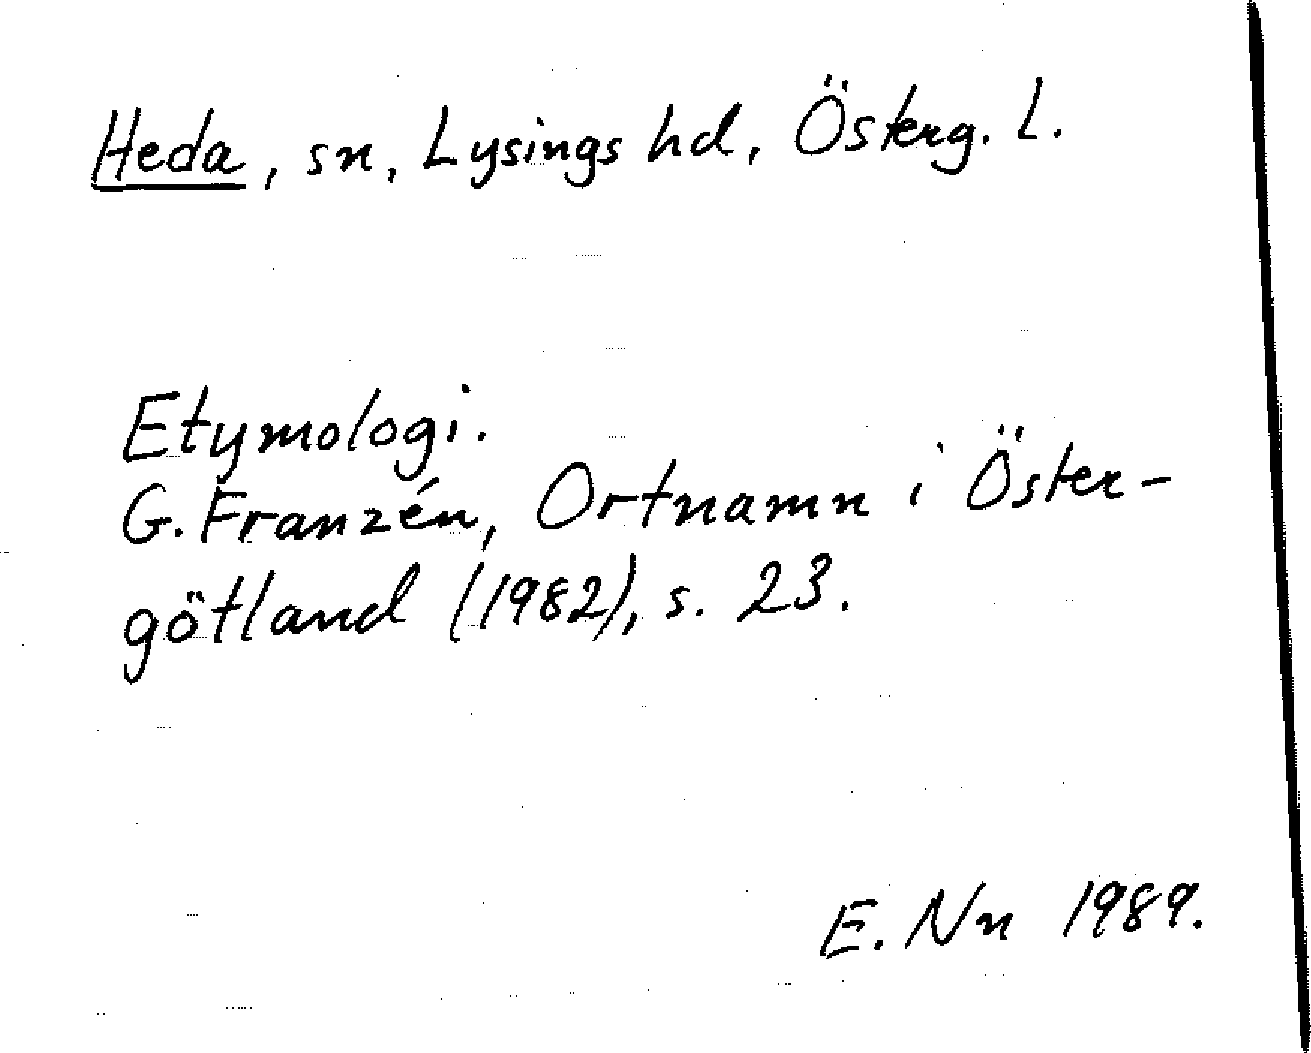 Heda, sn, Lysings hd, Österg. L.
Etymologi.
G. Franzén, Ortnamn i Öster-
götland (1982), s. 23.
E. Nn 1989.